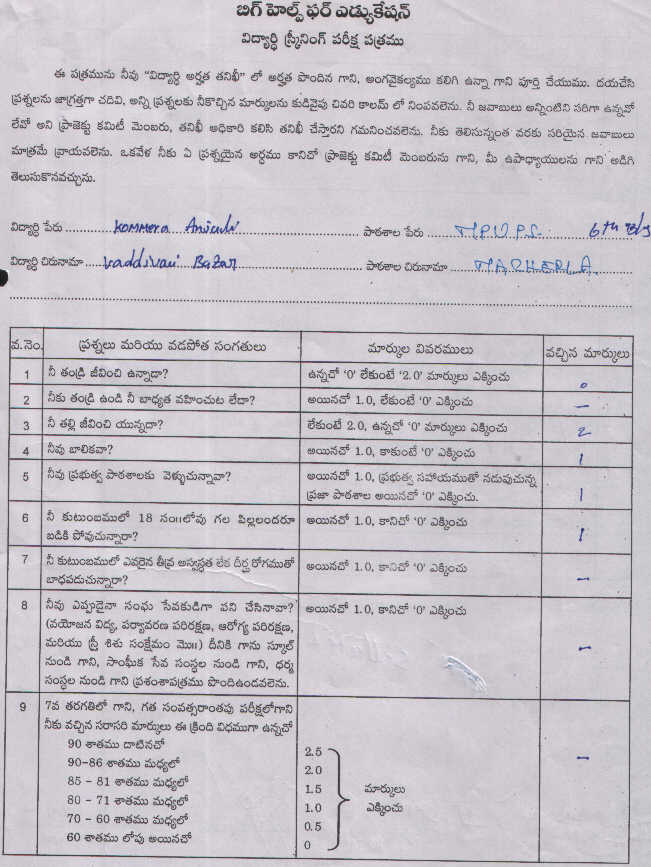 బిగ్ హెల్ప్ ఫర్ ఎడ్యుకేషన్
విద్యార్ధి స్క్రీనింగ్ పరీక్ష పత్రము
ఈ పత్రమును నీవు “విద్యార్థి అర్హత తనిఖీ” లో అర్హత పొందిన గాని, అంగవైకల్యము కలిగి ఉన్నా గాని పూర్తి చేయుము. దయచేసి
ప్రశ్నలను జాగ్రత్తగా చదివి, అన్ని ప్రశ్నలకు నీకొచ్చిన మార్కులను కుడివైపు చివరి కాలమ్ లో నింపవలెను. నీ జవాబులు అన్నింటిని సరిగా ఉన్నచో
లేవో అని ప్రాజెక్టు కమిటీ మెంబరు, తనిఖీ అధికారి కలిసి తనిఖీ చేస్తారని గమనించవలెను. నీకు తెలిసున్నంత వరకు సరియైన జవాబులు
మాత్రమే వ్రాయవలెను. ఒకవేళ నీకు ఏ ప్రశ్నయైన అర్ధము కానిచో ప్రాజెక్టు కమిటీ మెంబరును గాని, మీ ఉపాధ్యాయులను గాని అడిగి
తెలుసుకొనవచ్చును.
విద్యార్థి పేరు Kommera పాఠశాల పేరు M.P.U.P.S. 6th
విద్యార్థి చిరునామా Vaddivari Bazar పాఠశాల చిరునామా MACHERLA
వ.నెం. ప్రశ్నలు మరియు వడపోత సంగతులు మార్కుల వివరములు వచ్చిన మార్కులు
1 నీ తండ్రి జీవించి ఉన్నాడా? ఉన్నచో ‘0’ లేకుంటే ‘2.0’ మార్కులు ఎక్కించు 0
2 నీకు తండ్రి ఉండి నీ బాధ్యత వహించుట లేదా? అయినచో 1.0, లేకుంటే ‘0’ ఎక్కించు –
3 నీ తల్లి జీవించి యున్నదా? లేకుంటే 2.0, ఉన్నచో ‘0’ మార్కులు ఎక్కించు 2
4 నీవు బాలికవా? అయినచో 1.0, కాకుంటే ‘0’ ఎక్కించు 1
5 నీవు ప్రభుత్వ పాఠశాలకు వెళ్ళుచున్నావా? అయినచో 1.0, ప్రభుత్వ సహాయముతో నడుపుచున్న
ప్రజా పాఠశాల అయినచో ‘0’ ఎక్కించు. 1
6 నీ కుటుంబములో 18 సం॥లోపు గల పిల్లలందరూ అయినచో 1.0, కానిచో ‘0’ ఎక్కించు 1
బడికి పోవుచున్నారా?
7 నీ కుటుంబములో ఎవరైన తీవ్ర అస్వస్థత లేక దీర్ఘ రోగముతో అయినచో 1.0, కానిచో ‘0’ ఎక్కించు –
బాధపడుచున్నారా?
8 నీవు ఎప్పుడైనా సంఘ సేవకుడిగా పని చేసినావా? అయినచో 1.0, కానిచో ‘0’ ఎక్కించు
(వయోజన విద్య, పర్యావరణ పరిరక్షణ, ఆరోగ్య పరిరక్షణ,
మరియు స్త్రీ శిశు సంక్షేమం మొ॥) దీనికి గాను స్కూల్ –
నుండి గాని, సాంఘీక సేవ సంస్థల నుండి గాని, ధర్మ
సంస్థల నుండి గాని ప్రశంశాపత్రము పొందిఉండవలెను.
9 7వ తరగతిలో గాని, గత సంవత్సరాంతపు పరీక్షలోగాని
నీకు వచ్చిన సరాసరి మార్కులు ఈ క్రింది విధముగా ఉన్నచో
90 శాతము దాటినచో 2.5 –
90-86 శాతము మధ్యలో 2.0
85 - 81 శాతము మధ్యలో 1.5 మార్కులు
80 - 71 శాతము మధ్యలో 1.0 ఎక్కించు
70 - 60 శాతము మధ్యలో 0.5
60 శాతము లోపు అయినచో 0